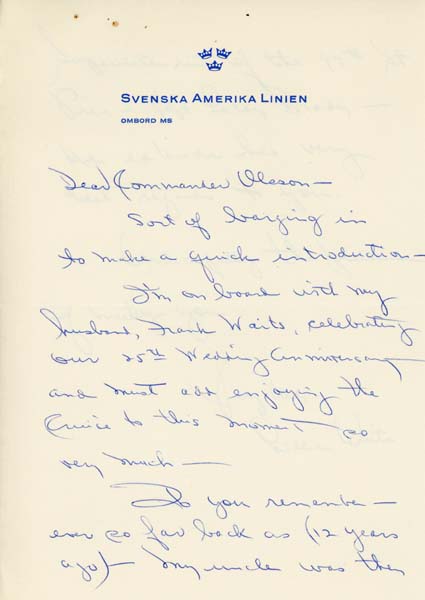 SVENSKA AMERIKA LINIEN
OMBORD MS
Dear Commander Oleson—
Sort of barging in
to make a quick introduction—
I'm on board with my
husband, Frank Waits, celebrating
our 25th Wedding Anniversary
and must add enjoying the
Cruice to this moment so
very much—
Do you remember—
ever so far back as (12 years
ago)— my uncle was then